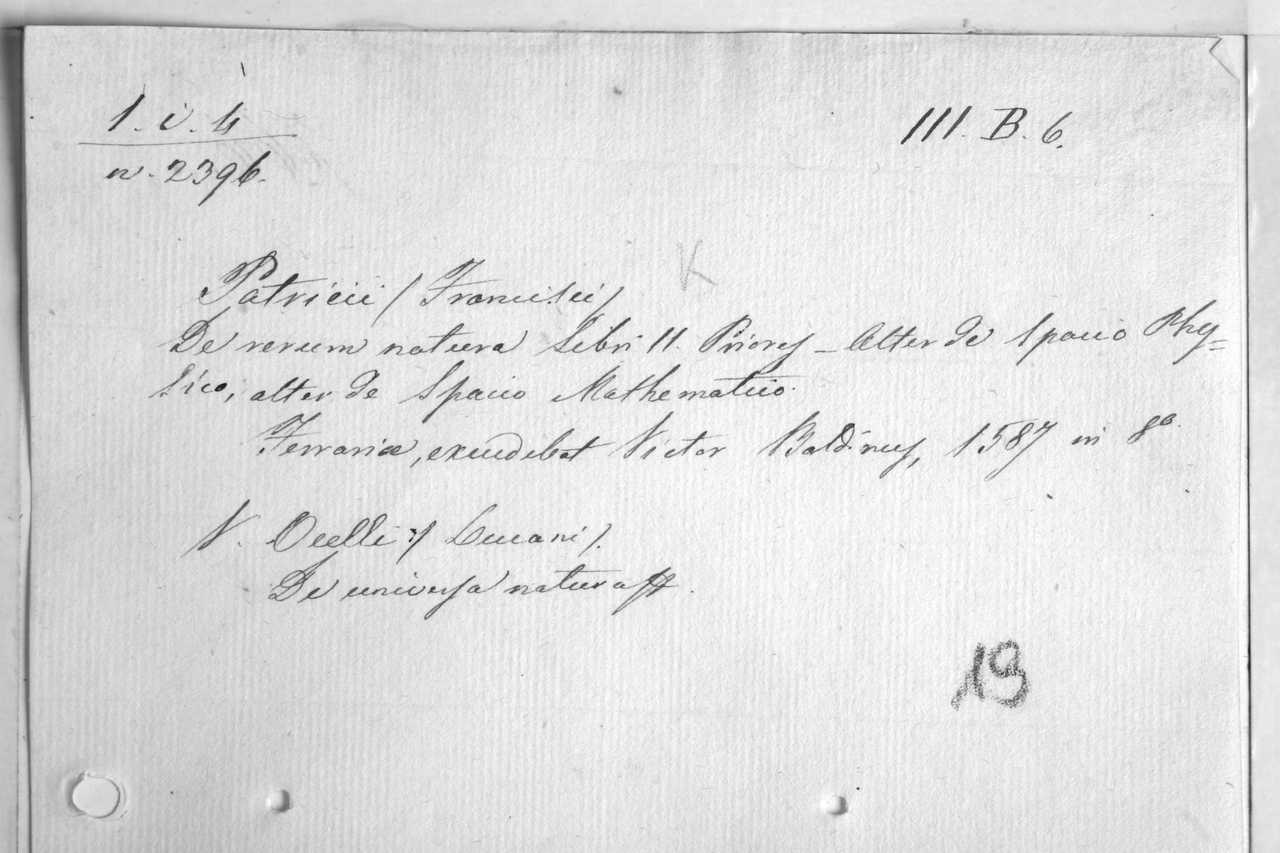 1. i. 4
n. 2396.
III. B. 6.
K
Patricii (Francisci)
De rerum natura Libri II. Priores _ Alter de Spacio Phy=
sico, alter de Spacio Mathematico.
Ferrariæ, excudebat Victor Baldinus, 1587 in 8º.
V. Ocelli (Lucani).
De universa natura
19